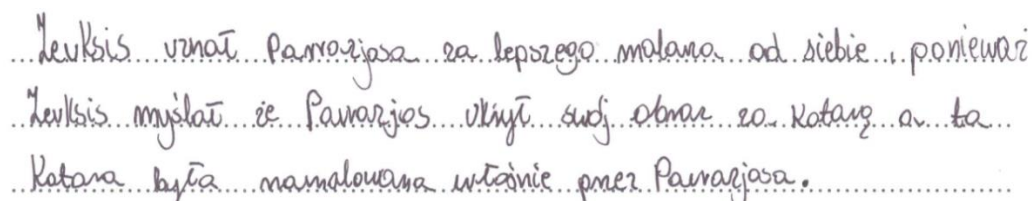 Zeuksis uznał Parrazjosa za lepszego malarza od siebie, ponieważ
Zeuksis myślał że Parrazjos ukrył swój obraz za kotarą a ta
kotara była namalowana właśnie przez Parrazjosa.